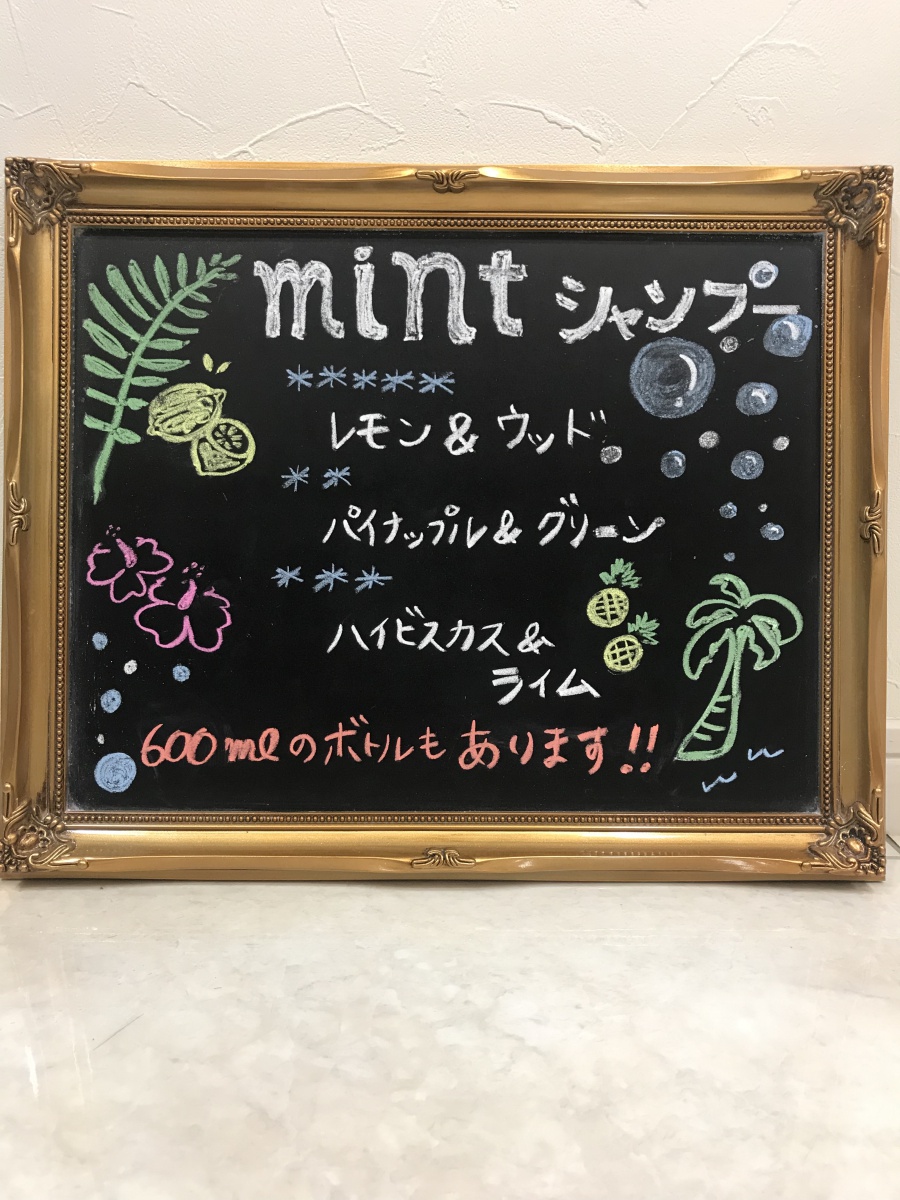 mint シャンプー
*****
レモン & ウッド
**
パイナップル & グリーン
***
ハイビスカス &
ライム
600mlのボトルもあります!!